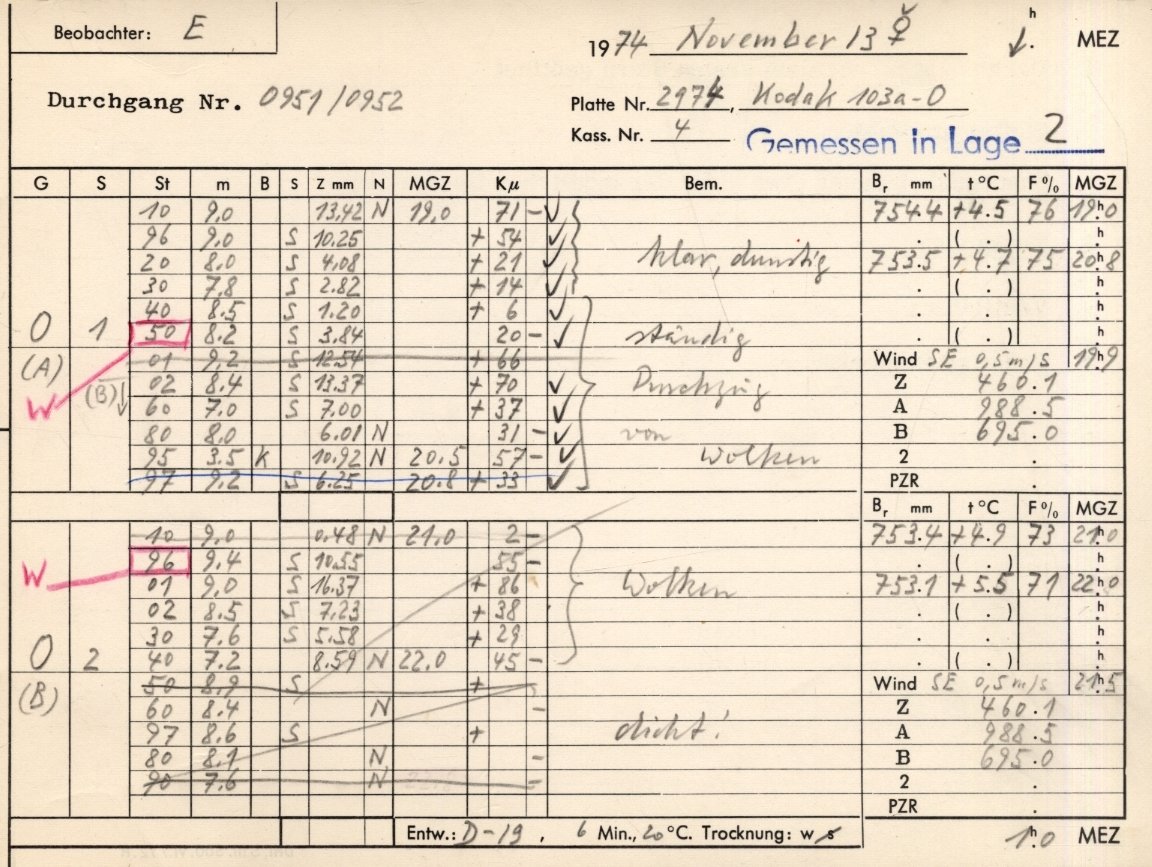 Beobachter: E
1974 November 13 ☿ h . MEZ
Durchgang Nr. 0951/0952
Platte Nr. 2974, Kodak 103a-O
Kass. Nr. 4 Gemessen in Lage 2
G S St m B S Z mm N MGZ Kμ Bem. Br mm t°C F% MGZ
10 9,0 13,42 N 19,0 71 - ✓ 754.4 +4.5 76 19h.0
96 9,0 S 10.25 + 54 ✓ . ( . ) h.
20 8.0 S 4,08 + 21 ✓ klar, dunstig 753.5 +4.7 75 20h.8
30 7.8 S 2.82 + 14 ✓ . ( . ) h.
40 8.5 S 1.20 + 6 ✓ . . h.
0 1 50 8.2 S 3,84 20 - ✓ ständig . ( . ) h.
(A) 01 9,2 S 12.54 + 66 Wind SE 0,5 m/s 19h.9
(B)↓ 02 8.4 S 13.37 + 70 ✓ Durchzug Z 460.1
W 60 7.0 S 7.00 + 37 ✓ A 988.5
80 8.0 6.01 N 31 - ✓ von B 695.0
95 3.5 K 10.92 N 20.5 57 - ✓ Wolken 2 .
97 9.2 S 6.25 20.8 + 33 ✓ PZR .
Br mm t°C F% MGZ
10 9,0 0.48 N 21.0 2 - 753.4 +4.9 73 21h.0
W 96 9,4 S 10.55 55 - . ( . ) h.
01 9,0 S 16.37 + 86 Wolken 753.1 +5.5 71 22h.0
02 8.5 S 7.23 + 38 . ( . ) h.
30 7.6 S 5.58 + 29 . . h.
0 2 40 7.2 8.59 N 22.0 45 - . ( . ) h.
(B) 50 8.9 S + Wind SE 0,5 m/s 21h.5
60 8.4 N - Z 460.1
97 8.6 S + dicht! A 988.5
80 8.1 N - B 695.0
90 7.6 N - 2 .
PZR .
Entw.: D-19, 6 Min., 20°C. Trocknung: w s 1h.0 MEZ